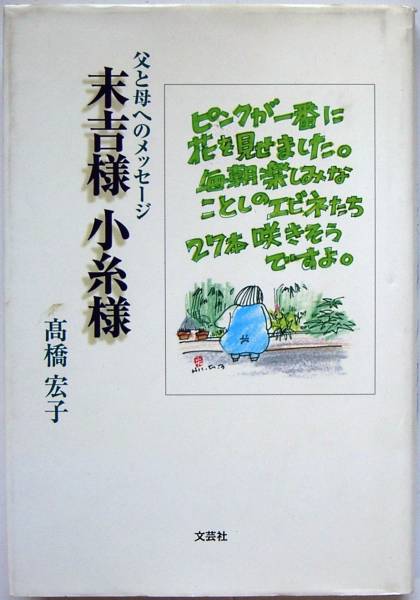 父と母へのメッセージ
末吉様 小糸様
髙橋 宏子
ピンクが一番に
花を見せました。
毎朝楽しみな
ことしのエビネたち
27本咲きそう
ですよ。
文芸社